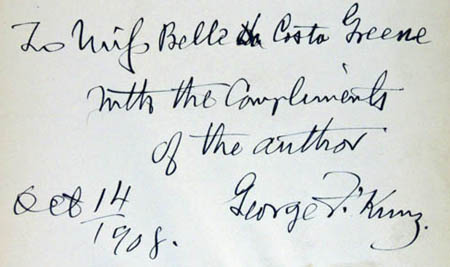 To Miss Belle da Costa Greene
with the Compliments
of the author
Oct 14
1908.
George F. Kunz.